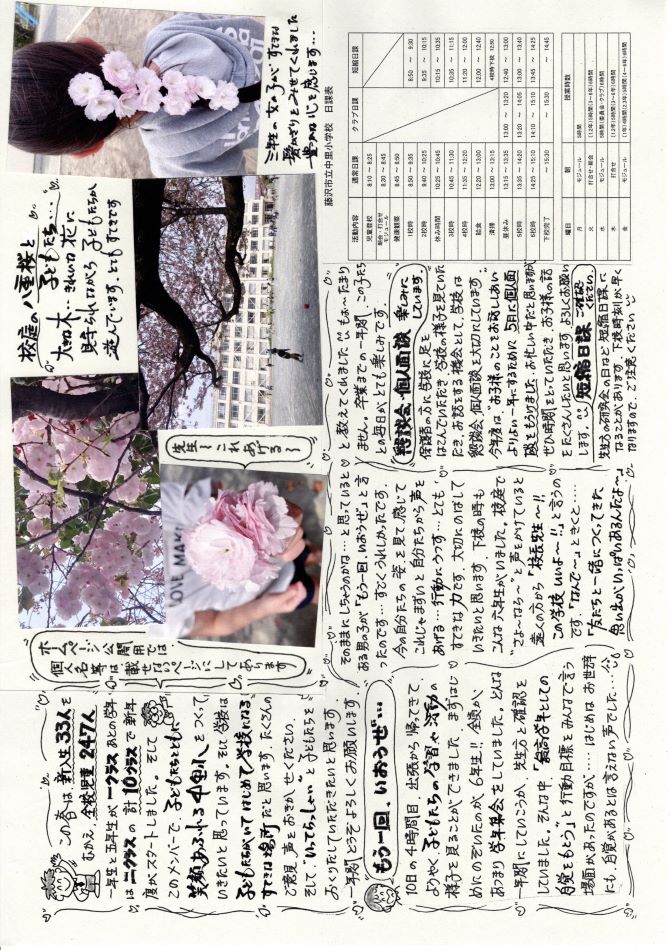 この春は、新入生33人を
むかえ、全校児童247人
一年生と五年生が一クラスあとの学年
は二クラスの計10クラスで新年
度がスタートしました。そして
このメンバーで、子どもたちとともに
笑顔あふれる中里小をつくって
いきたいと思っています。そして学校は
子どもたちがいてはじめて学校になる
すてきな場所だと思います。たくさんの
ご意見、声をおきかせください。
そして"いってらっしゃい"と子どもたちを
おくりだしていただきたいと思います。
一年間どうぞよろしくお願いします。
もう一回、いおうぜ…
10日の4時間目、出張から帰ってきて、
ようやく、子どもたちの学習や活動の
様子を見ることができました。まずはじ
めにのぞいたのが6年生!!全員が
あつまり学年集会をしていました。どんな
一年間にしていこうか、先生方と確認を
していました。そんな中、"最高学年としての
自覚をもとう"と行動目標をみんなで言う
場面があったのですが…はじめはお世辞
にも、自覚があるとは言えない声でした…
そのままにしちゃうのかな…と思っていると
ある男の子が「もう一回、いおうぜ」と言
ったのです…すごくうれしかったです。
今の自分たちの姿を見て、感じて
これじゃまずいと自分たちから声を
あげる…行動にうつす…とても
すてきな力です。大切にのばして
いきたいと思います。下校の時も
こんな六年生がいました。校庭で
"さよ～なら～"と声をかけていると
遠くの方から「校長先生～!!
この学校いいよ～!!」と言うの
です。「なんで～」ときくと…
「友だちと一緒につくってきた
思い出がいっぱいあるんだよ～」
と教えてくれました。もぉ～たまり
ません。卒業までの一年間、この子たち
との毎日が、とても楽しみです。
懇談会・個人面談 楽しみにしています。
保護者の方に学校に足を
はこんでいただき、学校の様子を見ていた
だき、お話をする機会として、学校は
懇談会・個人面談を大切にしています。
今年度は"お子様のことをお話ししあい
よりよい一年にするために"5月に個人面
談をもうけました。お忙しい中だと思いますが、
ぜひ時間をとっていただき、お子様の話
をたくさんしたいと思います。よろしくお願い
します。
短縮日課 ご確認ください。
先生方の研究会の日など、短縮日課に
なることがあります。下校時刻が早く
なりますので、ご注意ください
ホームページ公開用では
個人名等は載せないページにしてあります
校庭の八重桜と
子どもたち…
大切な木…きれいな花に
見守られながら子どもたちが
遊んでいます。とてもすてきです
三年生の女の子が すてきな
髪かざりをみせてくれました
豊かな心を感じます…
先生～これあげる～
LOVE MAKI
藤沢市立中里小学校 日課表
活動内容 通常日課 クラブ日課 短縮日課
児童登校 8:10 ～ 8:25
朝会・打合せ モジュール 8:30 ～ 8:45
健康観察 8:45 ～ 8:50
1校時 8:50 ～ 9:35 8:50 ～ 9:30
2校時 9:40 ～ 10:25 9:35 ～ 10:15
休み時間 10:25 ～ 10:45 10:15 ～ 10:35
3校時 10:45 ～ 11:30 10:35 ～ 11:15
4校時 11:35 ～ 12:20 11:20 ～ 12:00
給食 12:20 ～ 13:00 12:00 ～ 12:40
清掃 13:00 ～ 13:15 4校時下校 12:50
昼休み 13:15 ～ 13:35 13:00 ～ 13:20 12:40 ～ 13:00
5校時 13:35 ～ 14:20 13:20 ～ 14:05 13:00 ～ 13:40
6校時 14:25 ～ 15:10 14:10 ～ 15:10 13:45 ～ 14:25
下校完了 ～ 15:30 ～ 15:30 ～ 14:45
曜日 朝 授業時数
月 モジュール 5時間
火 打合せ・朝会
水 モジュール
木 打合せ
金 モジュール